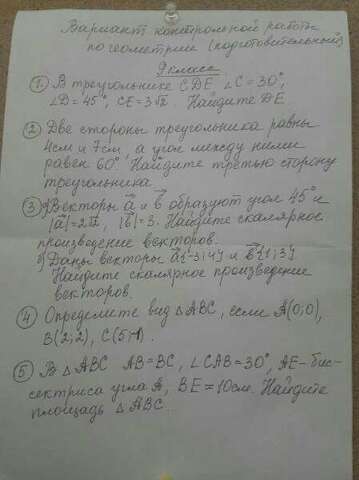 Вариант контрольной работы
по геометрии (подготовительный)
9 класс
① В треугольнике CDE ∠C = 30°,
∠D = 45°, CE = 3√2. Найдите DE.
② Две стороны треугольника равны
4 см и 7 см, а угол между ними
равен 60°. Найдите третью сторону
треугольника.
③ а) Векторы a⃗ и b⃗ образуют угол 45° и
|a⃗| = 2√2, |b⃗| = 3. Найдите скалярное
произведение векторов.
б) Даны векторы a⃗{-3;4} и b⃗{1;3}.
Найдите скалярное произведение
векторов.
④ Определите вид △ABC, если A(0;0),
B(2;2), C(5;-1).
⑤ В △ABC AB = BC, ∠CAB = 30°, AE – бис-
сектриса угла A, BE = 10см. Найдите
площадь △ABC.